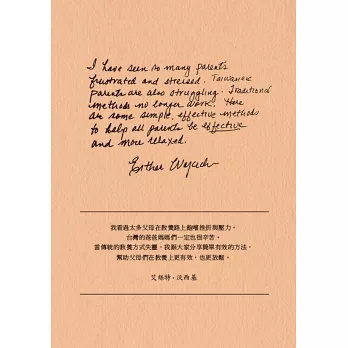 I have seen so many parents
frustrated and stressed. Taiwanese
parents are also struggling. Traditional
methods no longer work. Here
are some simple, effective methods
to help all parents be effective
and more relaxed.
Esther Wojcicki
我看過太多父母在教養路上飽嚐挫折與壓力，
台灣的爸爸媽媽們一定也很辛苦。
當傳統的教養方式失靈，我願大家分享簡單有效的方法，
幫助父母們在教養上更有效，也更放鬆。
艾絲特・沃西基